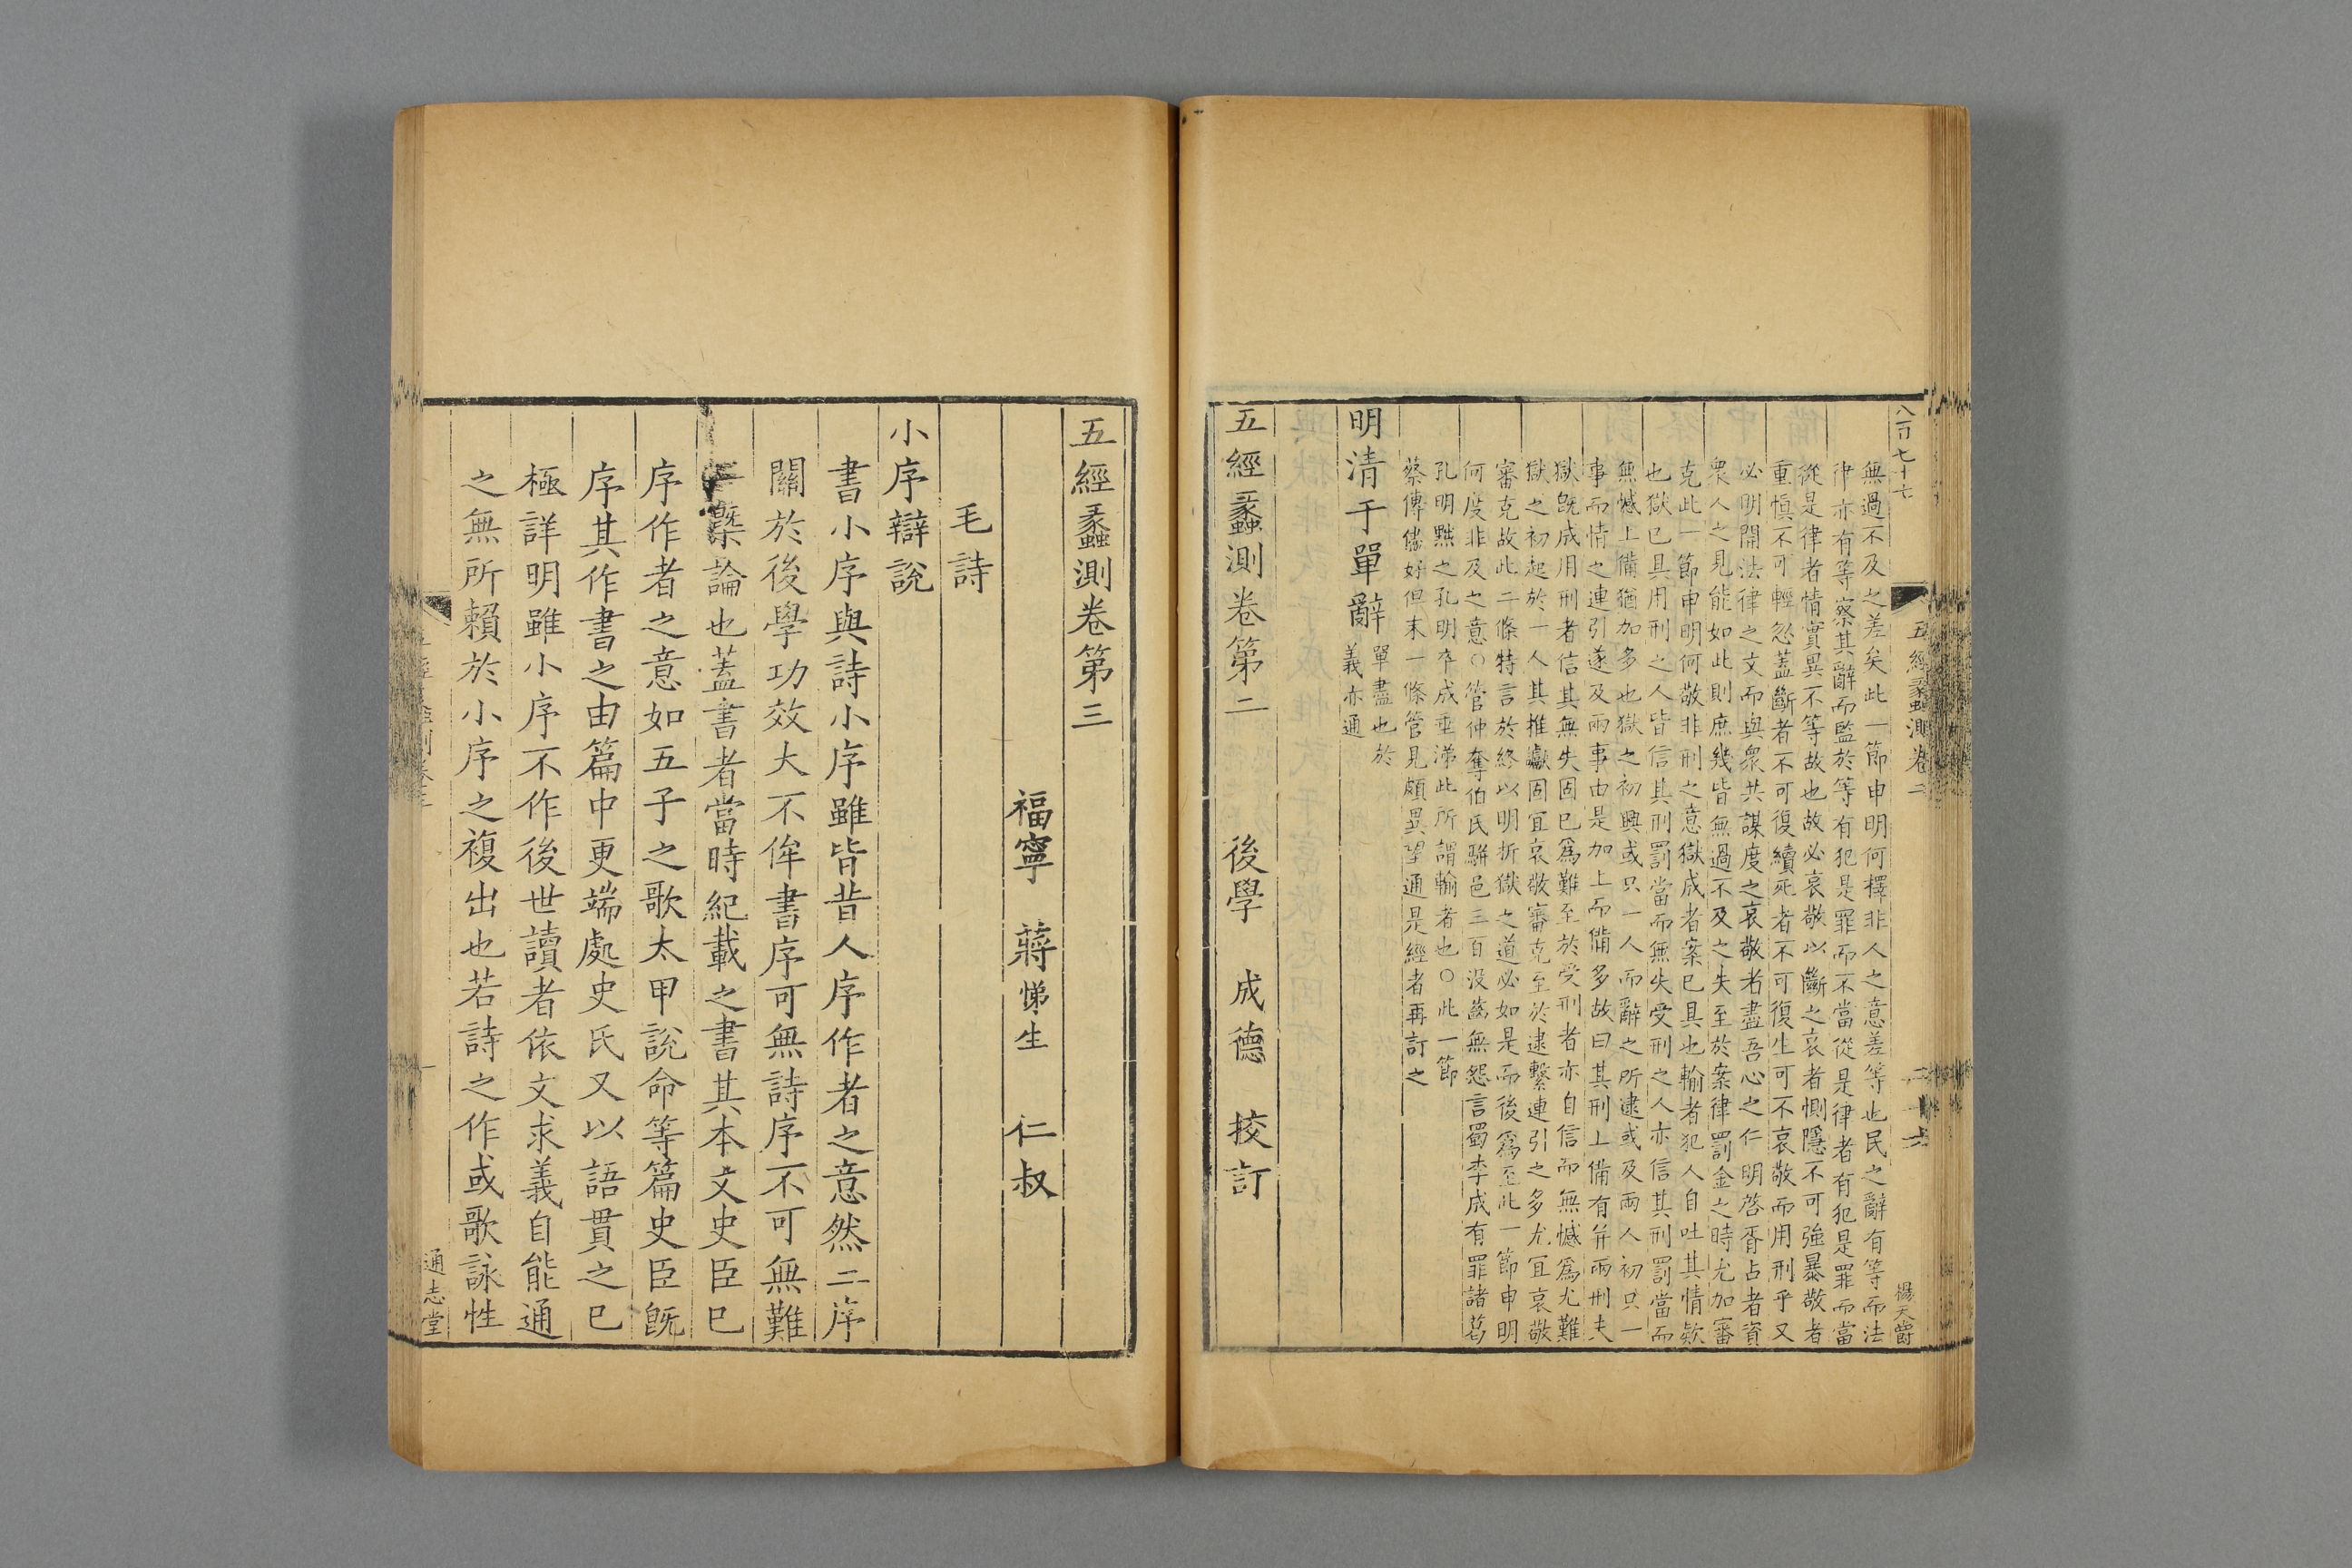 八百七十六
五經蠡測卷二
二十六
楊天爵
無過不及之差矣此一節申明何擇非人之意差等也民之辭有等而法
律亦有等察其辭而監於等有犯是罪而不當從是律者有犯是罪而當
從是律者情實異不等故也故必哀敬以斷之哀者惻隱不可強暴敬者
重慎不可輕忽蓋斷者不可復續死者不可復生可不哀敬而用刑乎又
必明開法律之文而與衆共謀度之哀敬者盡吾心之仁明啓胥占者資
衆人之見能如此則庶幾皆無過不及之失至於案律罰金之時尤加審
克此一節申明何敬非刑之意獄成者案已具也輸者犯人自吐其情款
也獄已具用刑之人皆信其刑罰當而無失受刑之人亦信其刑罰當而
無憾上備猶加多也獄之初興或只一人而辭之所逮或及兩人初只一
事而情之連引遂及兩事由是加上而備多故曰其刑上備有并兩刑夫
獄旣成用刑者信其無失固已爲難至於受刑者亦自信而無憾爲尤難
獄之初起於一人其推讞固宜哀敬審克至於逮繫連引之多尤宜哀敬
審克故此二條特言於終以明折獄之道必如是而後爲至此一節申明
何度非及之意○管仲奪伯氏駢邑三百沒齒無怨言蜀李成有罪諸葛
孔明黜之孔明卒成垂涕此所謂輸者也○此一節
蔡傳儘好但末一條管見頗異望通是經者再訂之
明清于單辭
單盡也於
義亦通
五經蠡測卷第二　後學　成德　挍訂
五經蠡測卷第三
福寧　蔣悌生　仁叔
毛詩
小序辯說
書小序與詩小序雖皆昔人序作者之意然二序
關於後學功效大不侔書序可無詩序不可無難
槩論也蓋書者當時紀載之書其本文史臣已
序作者之意如五子之歌太甲說命等篇史臣旣
序其作書之由篇中更端處史氏又以語貫之已
極詳明雖小序不作後世讀者依文求義自能通
之無所賴於小序之複出也若詩之作或歌詠性
一
通志堂